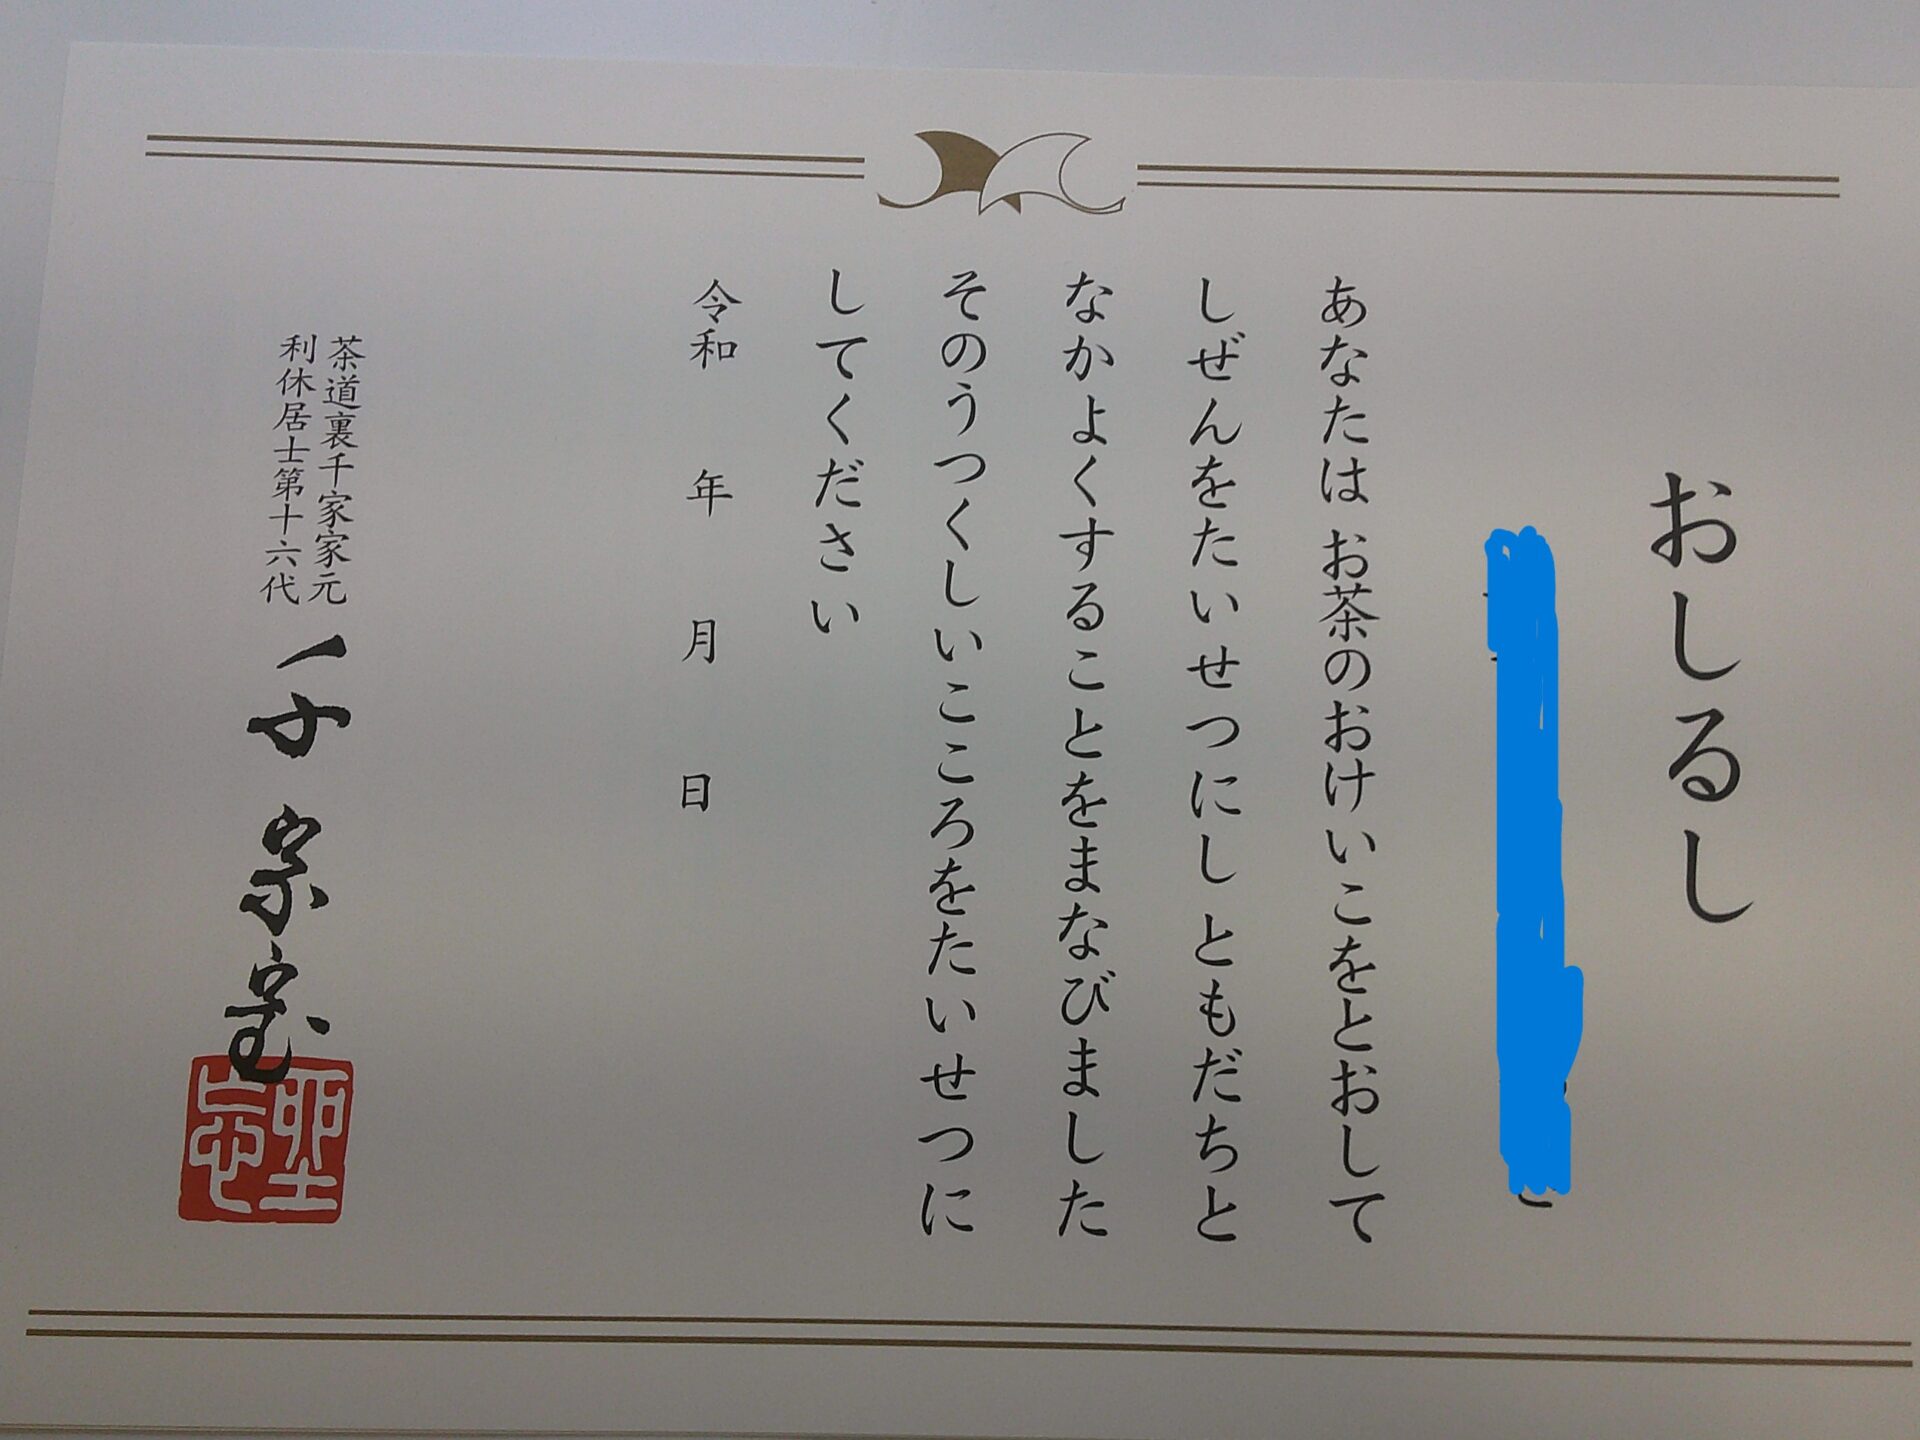 おしるし
あなたは お茶のおけいこをとおして
しぜんをたいせつにし ともだちと
なかよくすることをまなびました
そのうつくしいこころをたいせつに
してください
令和 年 月 日
茶道裏千家家元
利休居士第十六代
千 宗室